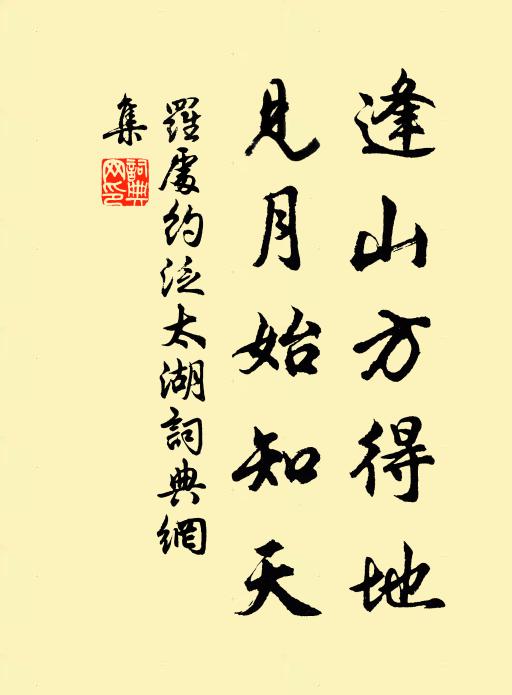 逢山方得地
見月始知天
羅處約泛太湖詞典網
集
詞典
网印